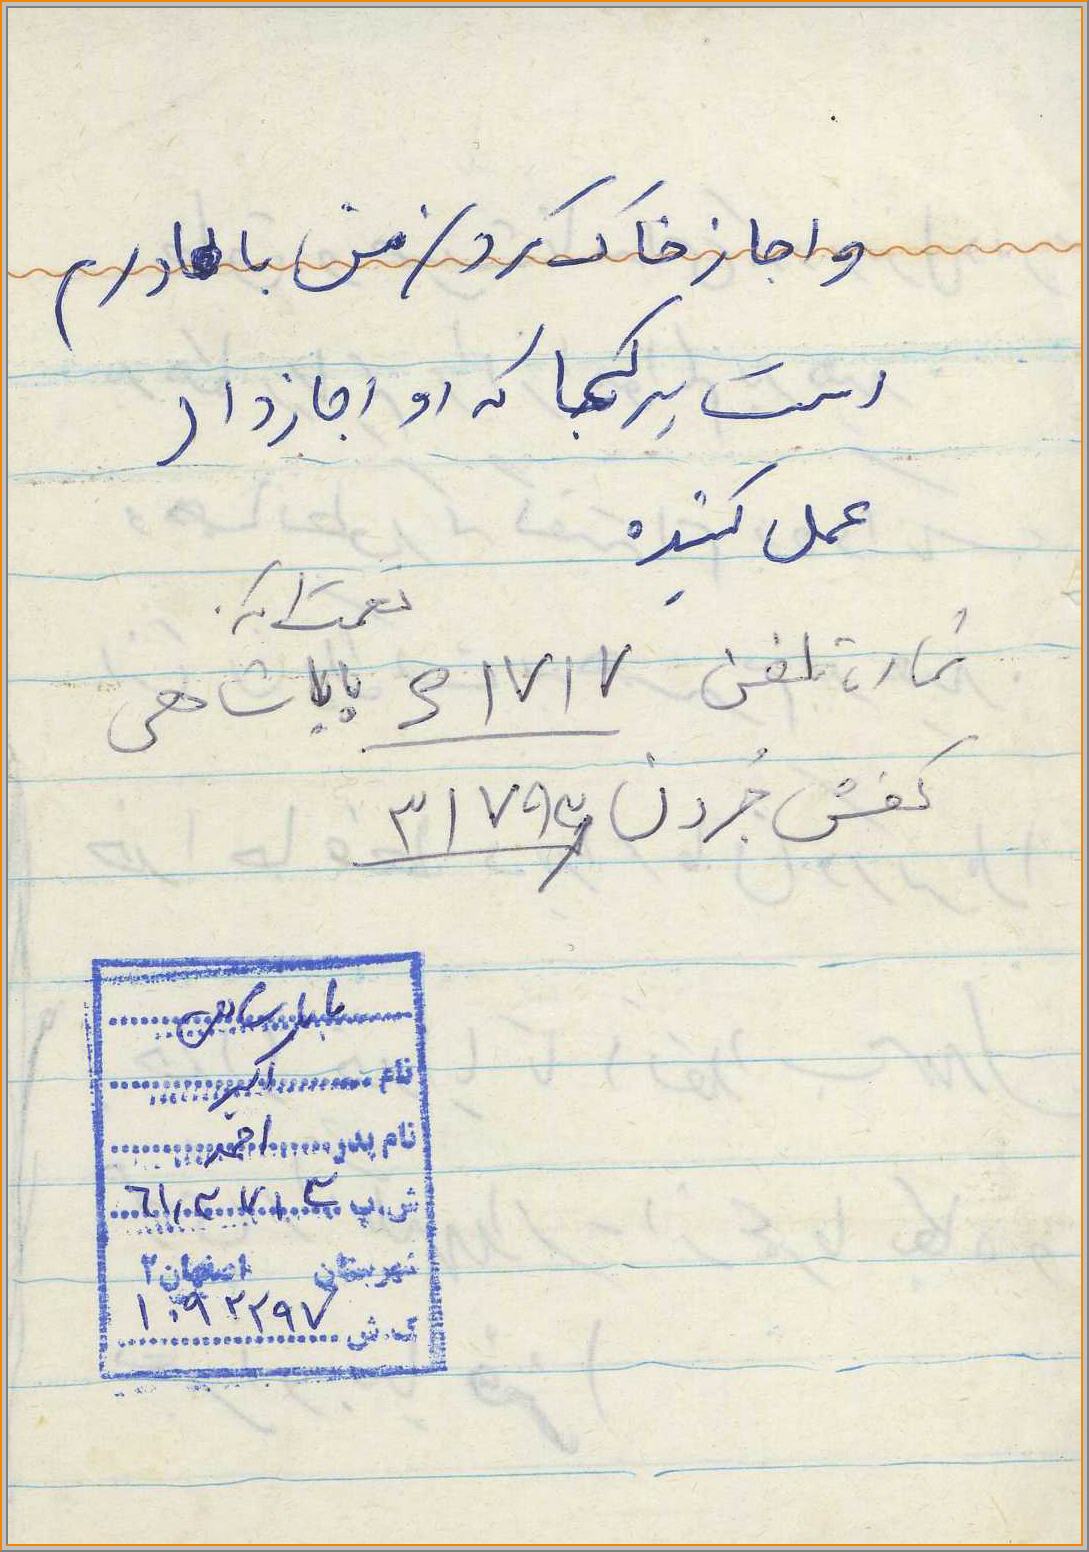 و اجاز خاک کردنمن با مادرم
است هر کجا که او اجاز داد
عمل کنید
نعمت اله
شماره تلفن ۶۱۷۱۷ باباشاهی
کفش جُردن ۳۱۷۹۴
باباشاهی
نام اکبر
نام پدر احمد
ش.پ ۶۱,۳۷۱,۳
شهرستان اصفهان ۲
ک.ش ۱۰۹۲۲۹۷